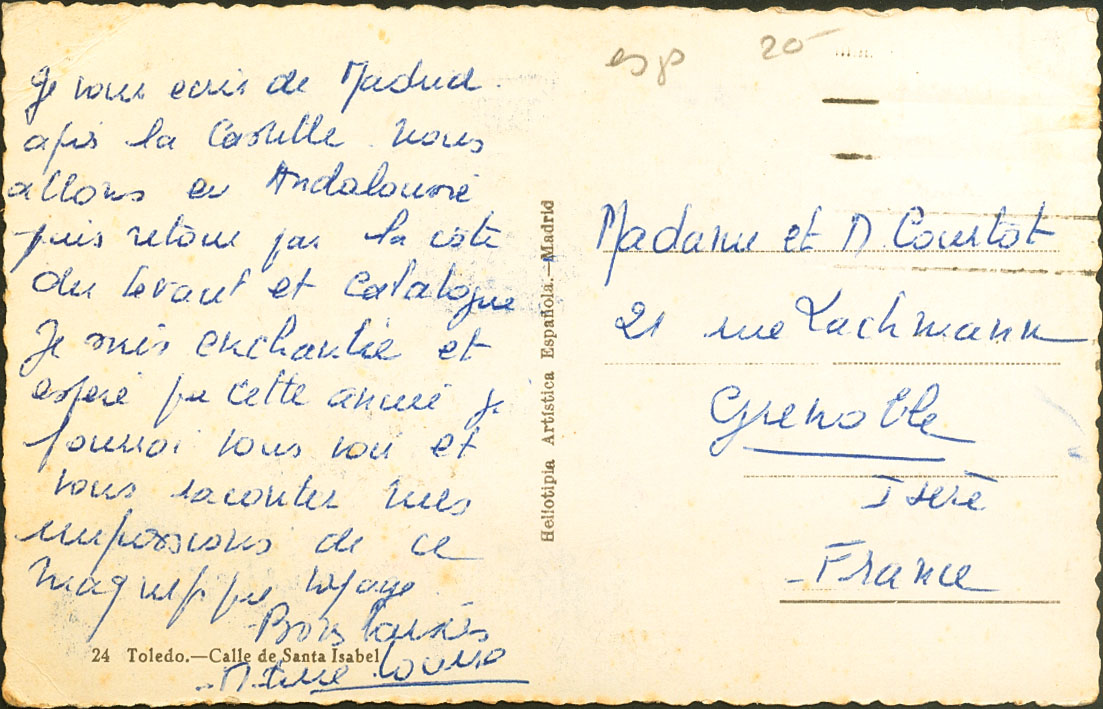 Je vous ecris de Madrid.
apis la Castille nous
allons en Andalousie
puis retour par la cote
du Levant et Catalogne
Je suis enchantée et
espere que cette année je
pourrai vous voir et
vous raconter mes
impressions de ce
magnifique voyage
Bons baisers
24 Toledo.—Calle de Santa Isabel
Heliotipia Artística Española.—Madrid
esp 20-
Madame et M. Courtot
21 rue Lachmann
Grenoble
Isère
-France